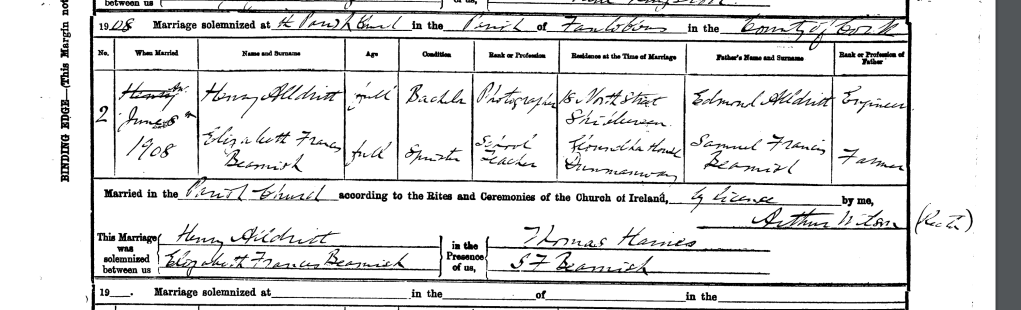 between us
of us,
1908 Marriage solemnized at the Parish Church in the Parish of Fanlobbus in the County of Cork
No. When Married Name and Surname Age Condition Rank or Profession Residence at the Time of Marriage Father's Name and Surname Rank or Profession of Father
2 June 8th 1908 Henry Alldritt full Bachelor Photographer 18 North Street Skibbereen Edmond Alldritt Engineer
Elizabeth Francis Beamish full Spinster School Teacher House Dunmanway Samuel Francis Beamish Farmer
Married in the Parish Church according to the Rites and Ceremonies of the Church of Ireland, by licence by me,
Arthur Wilson
This Marriage was solemnized between us Henry Alldritt in the Presence of us, Thomas Haines
Elizabeth Francis Beamish S F Beamish
19 . Marriage solemnized at in the of in the
BINDING EDGE—(This Margin not